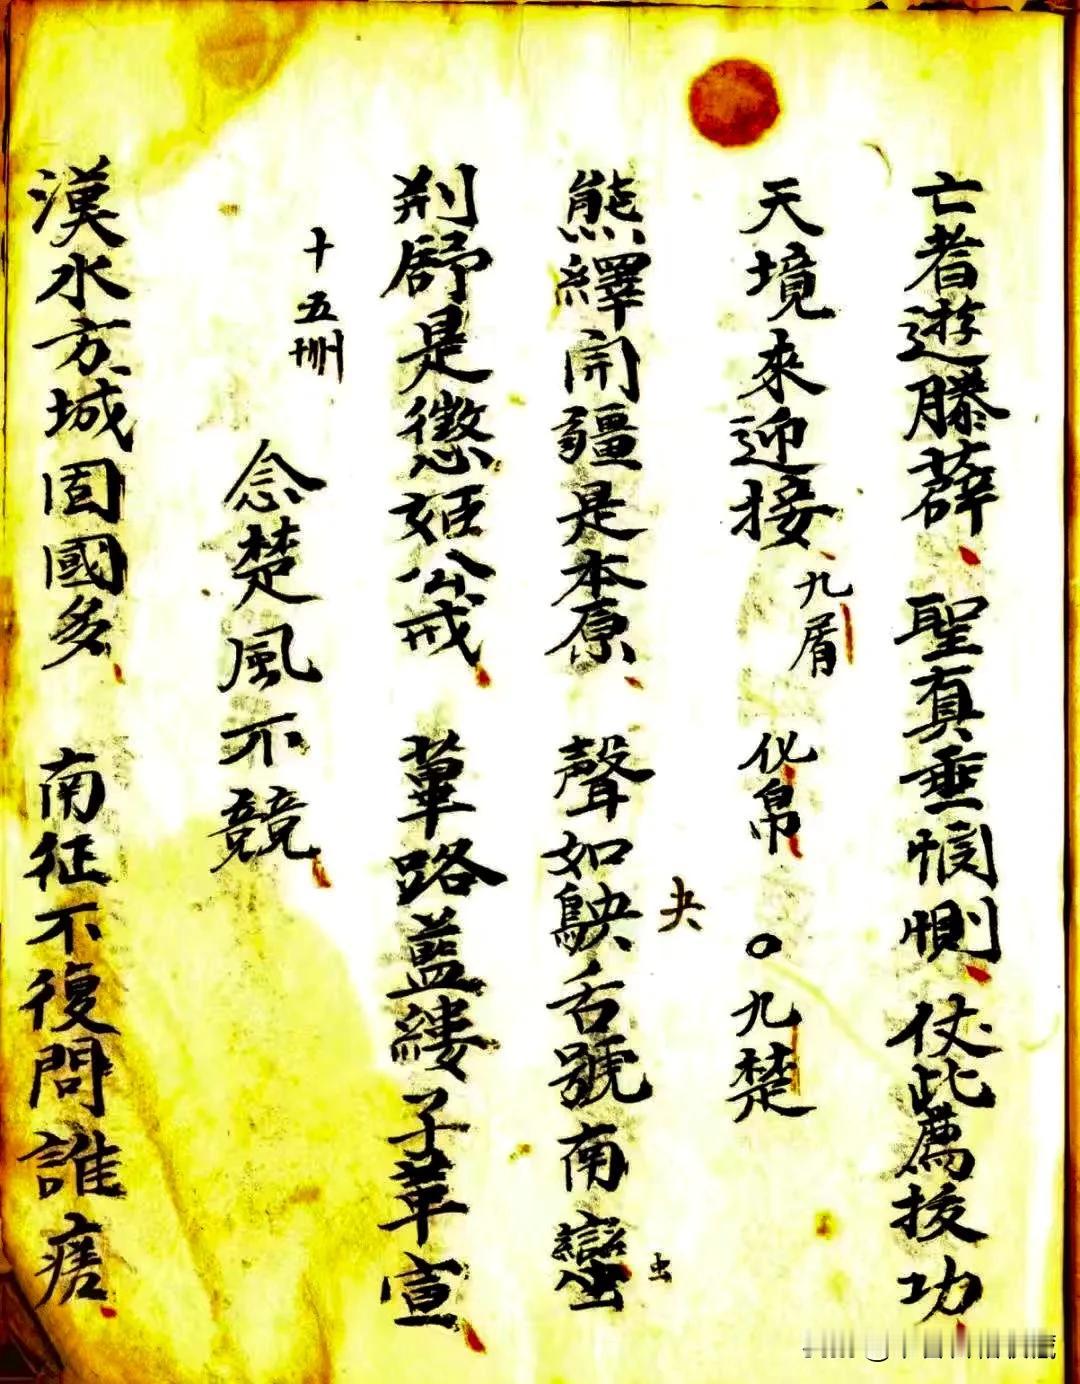 亡者遊滕薛 聖真垂憫惻 仗此薦拔功
天境來迎接 九屑 化帛 〇 九楚
熊繹開疆是本原 聲如鴃舌號南蠻
夬
虫
荊舒是懲姬公戒 蓽路藍縷子革宣
十五
念楚風不競
漢水方城固國多 南征不復問誰瘥